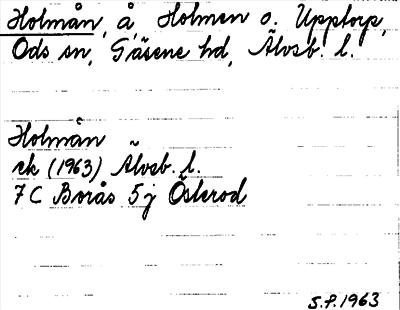 Holmån, å, Holmen o. Upptorp,
Ods sn, Gäsene hd, Älvsb. l.
Holmån
ek (1963) Älvsb. l.
7 C Borås 5 j Österod
S.F. 1963